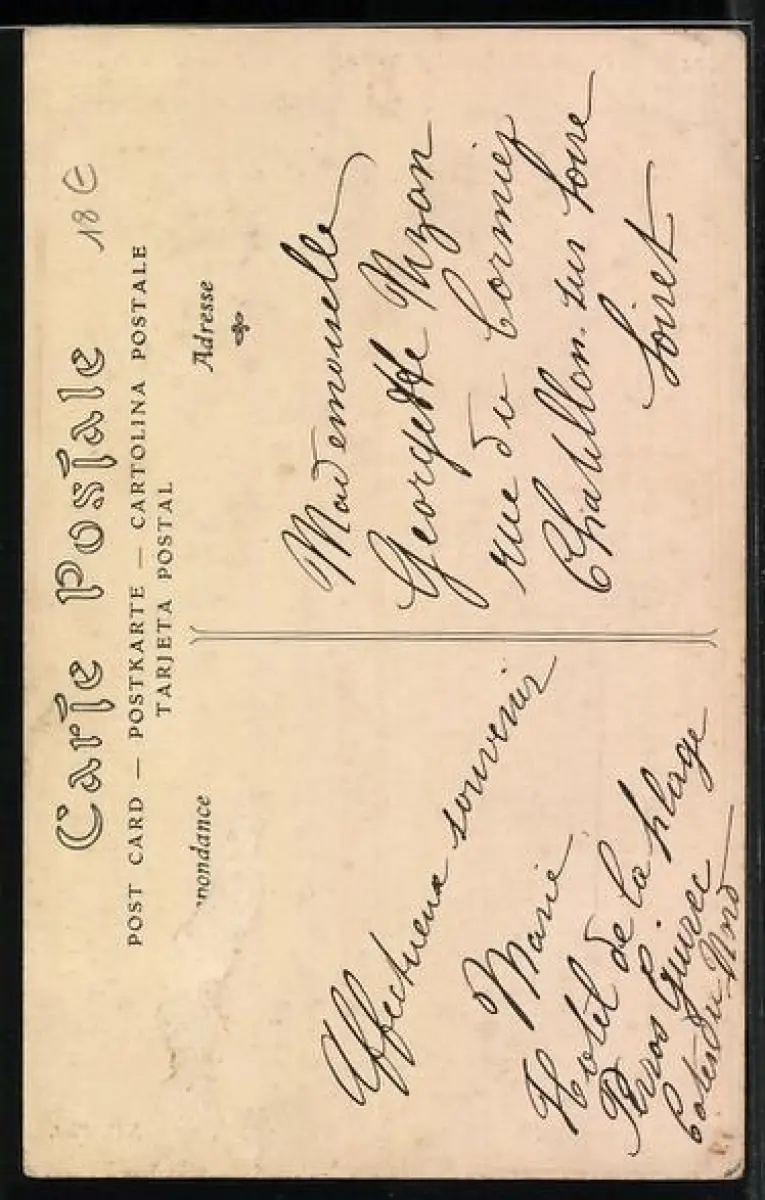 18 €
Carte Postale
POST CARD — POSTKARTE — CARTOLINA POSTALE
TARJETA POSTAL
pondance
Affectueux souvenir
Marie
Hotel de la plage
Perros Guirec
Cotes du Nord
Adresse
Mademoiselle
Georgette
rue du Cormier
Chatillon sur Loire
Loiret